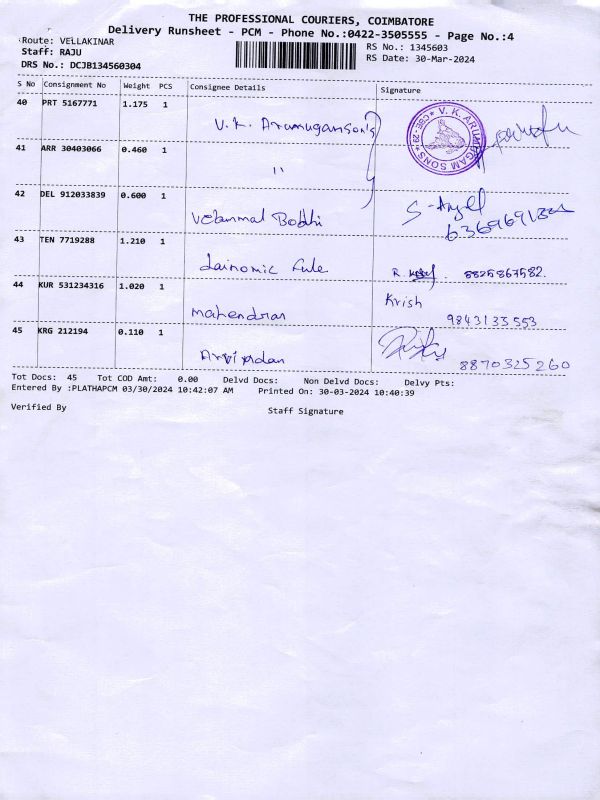 THE PROFESSIONAL COURIERS, COIMBATORE
Delivery Runsheet - PCM - Phone No.:0422-3505555 - Page No.:4
Route: VELLAKINAR
RS No.: 1345603
Staff: RAJU
RS Date: 30-Mar-2024
DRS No.: DCJB134560304
S No Consignment No Weight PCS Consignee Details Signature
40 PRT 5167771 1.175 1 V.K. Arumuganson's
V. K. ARUMUGAM SONS
CBE-29
41 ARR 30403066 0.460 1 "
42 DEL 912033839 0.600 1 Velammal Bodhi
43 TEN 7719288 1.210 1 8825867582.
44 KUR 531234316 1.020 1 Mahendran Krish
9843133553
45 KRG 212194 0.110 1
8870325260
Tot Docs: 45 Tot COD Amt: 0.00 Delvd Docs: Non Delvd Docs: Delvy Pts:
Entered By :PLATHAPCM 03/30/2024 10:42:07 AM Printed On: 30-03-2024 10:40:39
Verified By Staff Signature